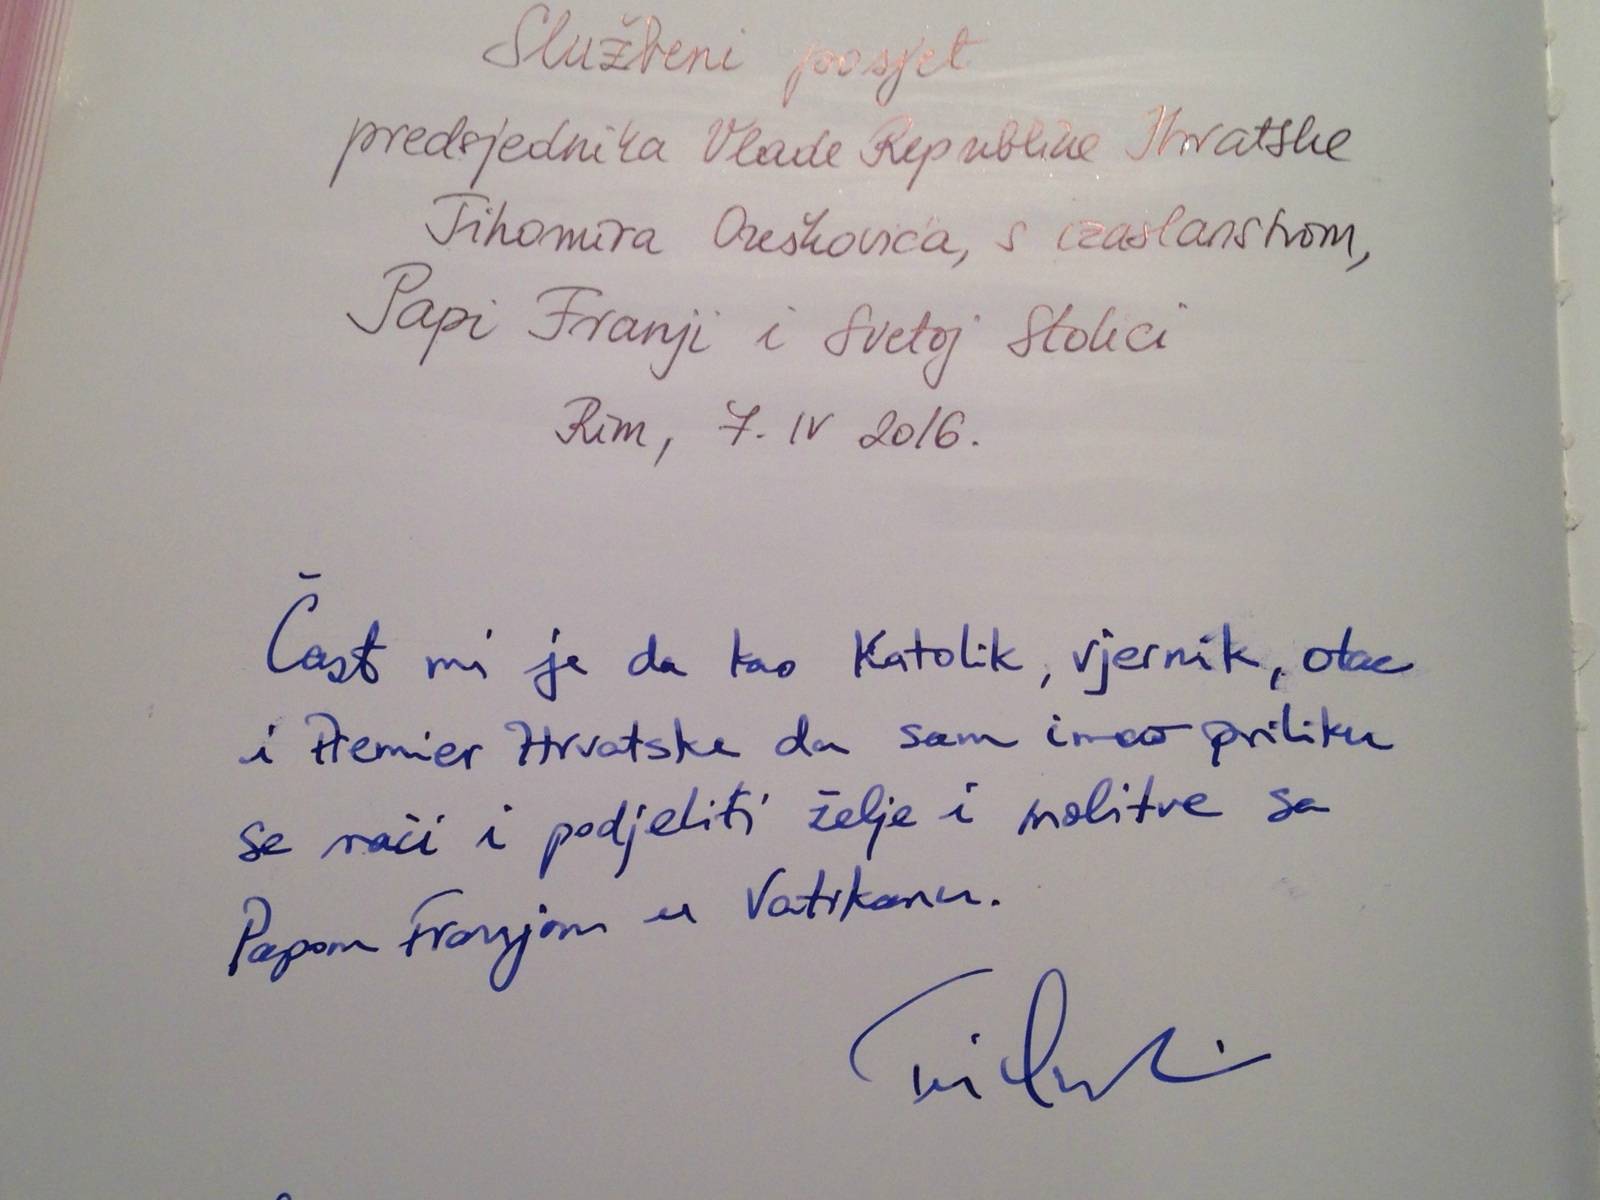 Službeni posjet
predsjednika Vlade Republike Hrvatske
Tihomira Oreškovića, s izaslanstvom,
Papi Franji i Svetoj Stolici
Rim, 7. IV 2016.
Čast mi je da kao Katolik, vjernik, otac
i Premier Hrvatske da sam imao priliku
se naći i podjeliti želje i molitve sa
Papom Franjom u Vatikanu.